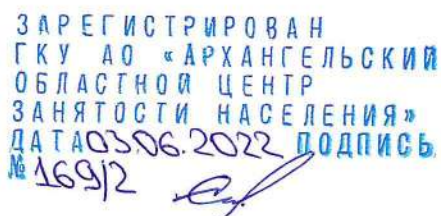 ЗАРЕГИСТРИРОВАН
ГКУ АО «АРХАНГЕЛЬСКИЙ
ОБЛАСТНОЙ ЦЕНТР
ЗАНЯТОСТИ НАСЕЛЕНИЯ»
ДАТА 03.06.2022 ПОДПИСЬ
№ 169/2